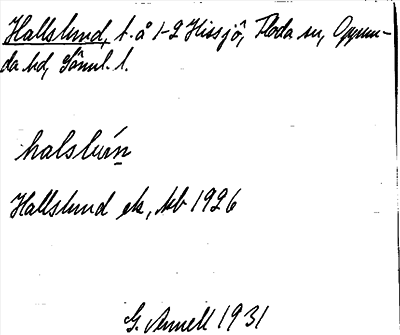 Hallslund, t. å 1-2 Hissjö, Floda sn, Oppun-
da hd, Söml. l.
halslun
Hallslund ek, kb 1926
G. Annell 1931